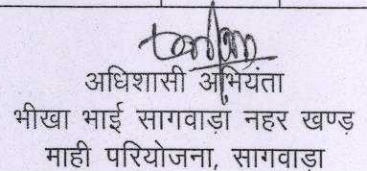 अधिशासी अभियंता
भीखा भाई सागवाड़ा नहर खण्ड
माही परियोजना, सागवाड़ा